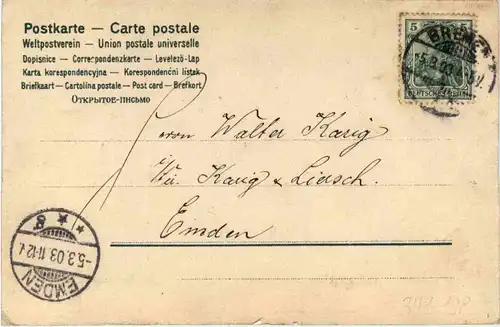 Postkarte — Carte postale
Weltpostverein — Union postale universelle
Dopisnice — Correspondenzkarte — Levelező-Lap
Karta korespondencyjna — Korespondenční lístek
Briefkaart — Cartolina postale — Post card — Brefkort
Открытое-письмо
5
BREMEN
5.3.03
Herrn Walter Karig
Karig & Liasch.
Emden
* * 8
-5.3.03.11-12V.
EMDEN